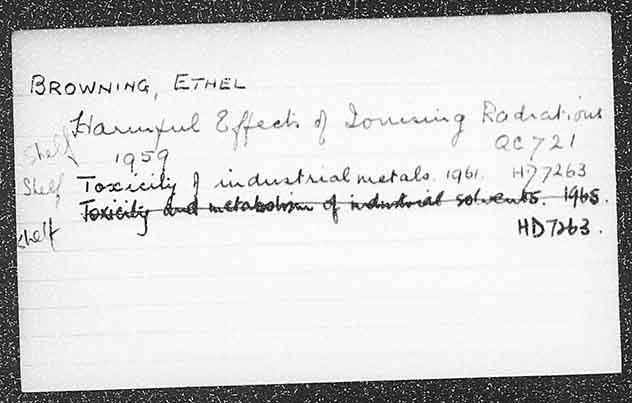 BROWNING, ETHEL
Harmful Effects of Ionising Radiations
shelf 1959 QC 721
Shelf Toxicity of industrial metals. 1961. HD7263
Toxicity and metabolism of industrial solvents. 1965.
shelf HD7263.